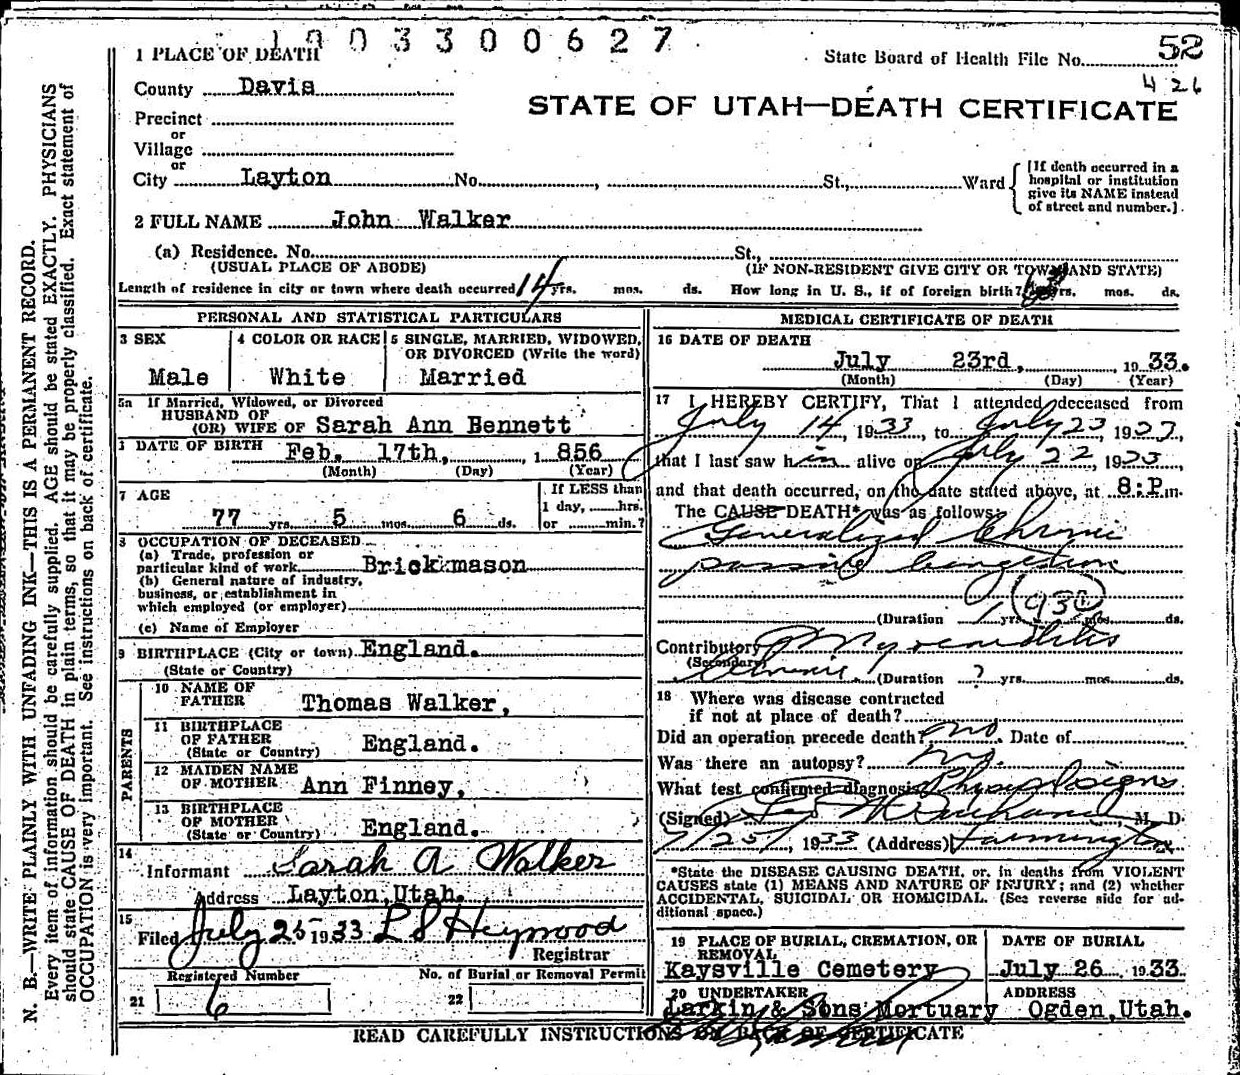 1003300627
1 PLACE OF DEATH
State Board of Health File No. 52
426
County Davis
STATE OF UTAH—DEATH CERTIFICATE
Precinct
or
Village
or
City Layton No. , St., Ward
[If death occurred in a
hospital or institution
give its NAME instead
of street and number.]
2 FULL NAME John Walker
(a) Residence. No. St.,
(USUAL PLACE OF ABODE) (IF NON-RESIDENT GIVE CITY OR TOWN AND STATE)
Length of residence in city or town where death occurred 14 yrs. mos. ds. How long in U. S., if of foreign birth? yrs. mos. ds.
PERSONAL AND STATISTICAL PARTICULARS
3 SEX
Male
4 COLOR OR RACE
White
5 SINGLE, MARRIED, WIDOWED,
OR DIVORCED (Write the word)
Married
5a If Married, Widowed, or Divorced
HUSBAND OF
(OR) WIFE OF Sarah Ann Bennett
DATE OF BIRTH Feb. 17th, 1 856
(Month) (Day) (Year)
7 AGE
77 yrs. 5 mos. 6 ds.
If LESS than
1 day, hrs.
or min.?
8 OCCUPATION OF DECEASED
(a) Trade, profession or
particular kind of work Brick mason
(b) General nature of industry,
business, or establishment in
which employed (or employer)
(c) Name of Employer
9 BIRTHPLACE (City or town) England.
(State or Country)
PARENTS
10 NAME OF
FATHER Thomas Walker,
11 BIRTHPLACE
OF FATHER England.
(State or Country)
12 MAIDEN NAME
OF MOTHER Ann Finney,
13 BIRTHPLACE
OF MOTHER
(State or Country) England.
14
Informant Sarah A Walker
Address Layton, Utah.
15
Filed July 25 1933 L S Heywood
Registrar
Registered Number No. of Burial or Removal Permit
21 6 22
MEDICAL CERTIFICATE OF DEATH
16 DATE OF DEATH
July 23rd, 1933.
(Month) (Day) (Year)
17 I HEREBY CERTIFY, That I attended deceased from
July 14, 1933, to July 23, 1933,
that I last saw him alive on July 22, 1933,
and that death occurred, on the date stated above, at 8:P.m.
The CAUSE DEATH* was as follows:
Generalized Chronic
passive congestion
930
(Duration 1 yrs. mos. ds.
Contributory Myocarditis
(Secondary) Chronic (Duration ? yrs. mos. ds.
18 Where was disease contracted
if not at place of death?
Did an operation precede death? no Date of
Was there an autopsy? no.
What test confirmed diagnosis? Physical signs
(Signed) M. D.
7/25/, 1933 (Address) Farmington
*State the DISEASE CAUSING DEATH, or, in deaths from VIOLENT
CAUSES state (1) MEANS AND NATURE OF INJURY; and (2) whether
ACCIDENTAL, SUICIDAL OR HOMICIDAL. (See reverse side for ad-
ditional space.)
19 PLACE OF BURIAL, CREMATION, OR
REMOVAL
Kaysville Cemetery
DATE OF BURIAL
July 26 1933.
20 UNDERTAKER
Larkin & Sons Mortuary
ADDRESS
Ogden, Utah.
READ CAREFULLY INSTRUCTIONS ON BACK OF CERTIFICATE
N. B.—WRITE PLAINLY WITH UNFADING INK—THIS IS A PERMANENT RECORD.
Every item of information should be carefully supplied. AGE should be stated EXACTLY. PHYSICIANS
should state CAUSE OF DEATH in plain terms, so that it may be properly classified. Exact statement of
OCCUPATION is very important. See instructions on back of certificate.